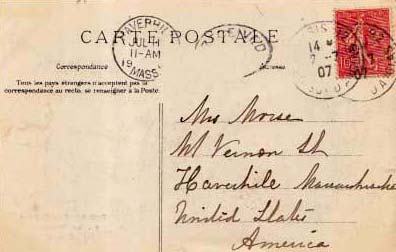 CARTE POSTALE
HAVERHILL
JUL 11
11-AM
19
MASS.
RECEIVED
14
07
07
Correspondance
Tous les pays étrangers n'acceptent pas la
correspondance au recto, se renseigner à la Poste.
Mrs Morse
Mt Vernon St
Haverhile Massachusetts
United States
America